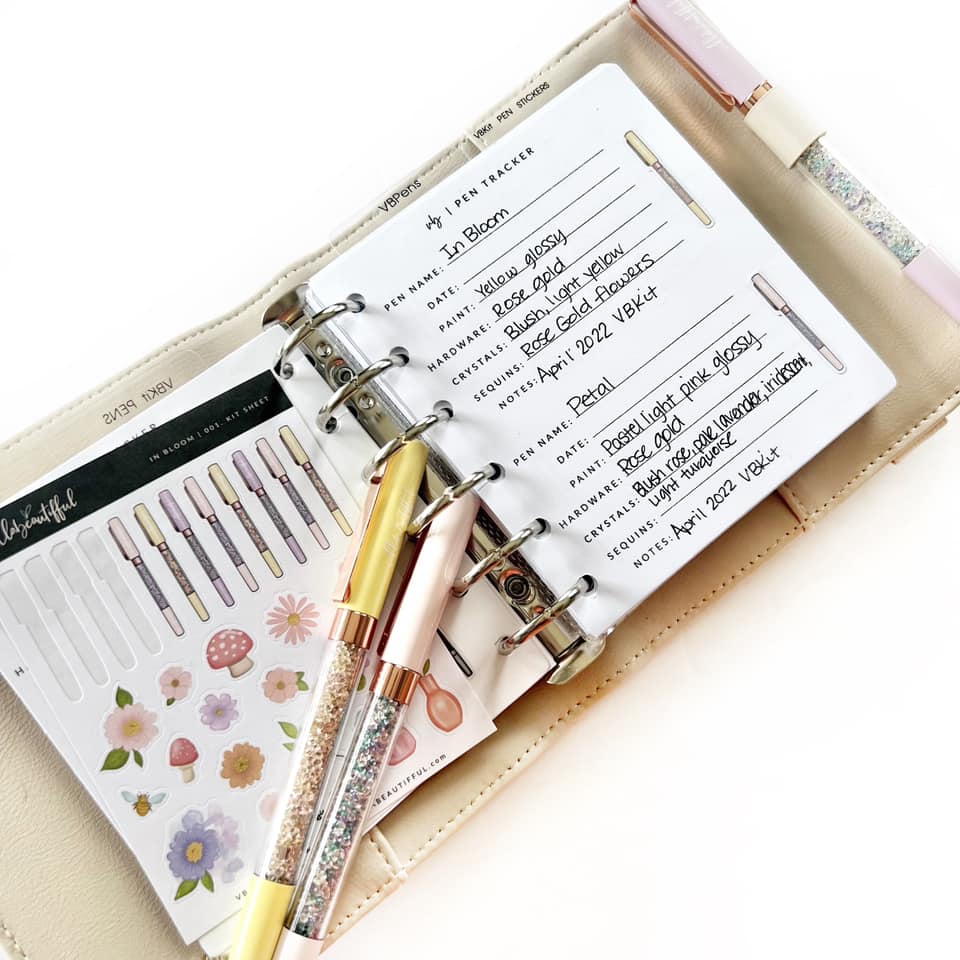 VBKit PEN STICKERS
VBPens
VBKit PENS
vb | PEN TRACKER
PEN NAME: In Bloom
DATE:
PAINT: Yellow glossy
HARDWARE: Rose gold
CRYSTALS: Blush, light yellow
SEQUINS: Rose Gold flowers
NOTES: April 2022 VBKit
PEN NAME: Petal
DATE:
PAINT: Pastel light pink glossy
HARDWARE: Rose gold
CRYSTALS: Blush rose, pale lavender, iridescent,
light turquoise
SEQUINS:
NOTES: April 2022 VBKit
IN BLOOM | 001- KIT SHEET
llabeautifful
ABEAUTIFFUL.com